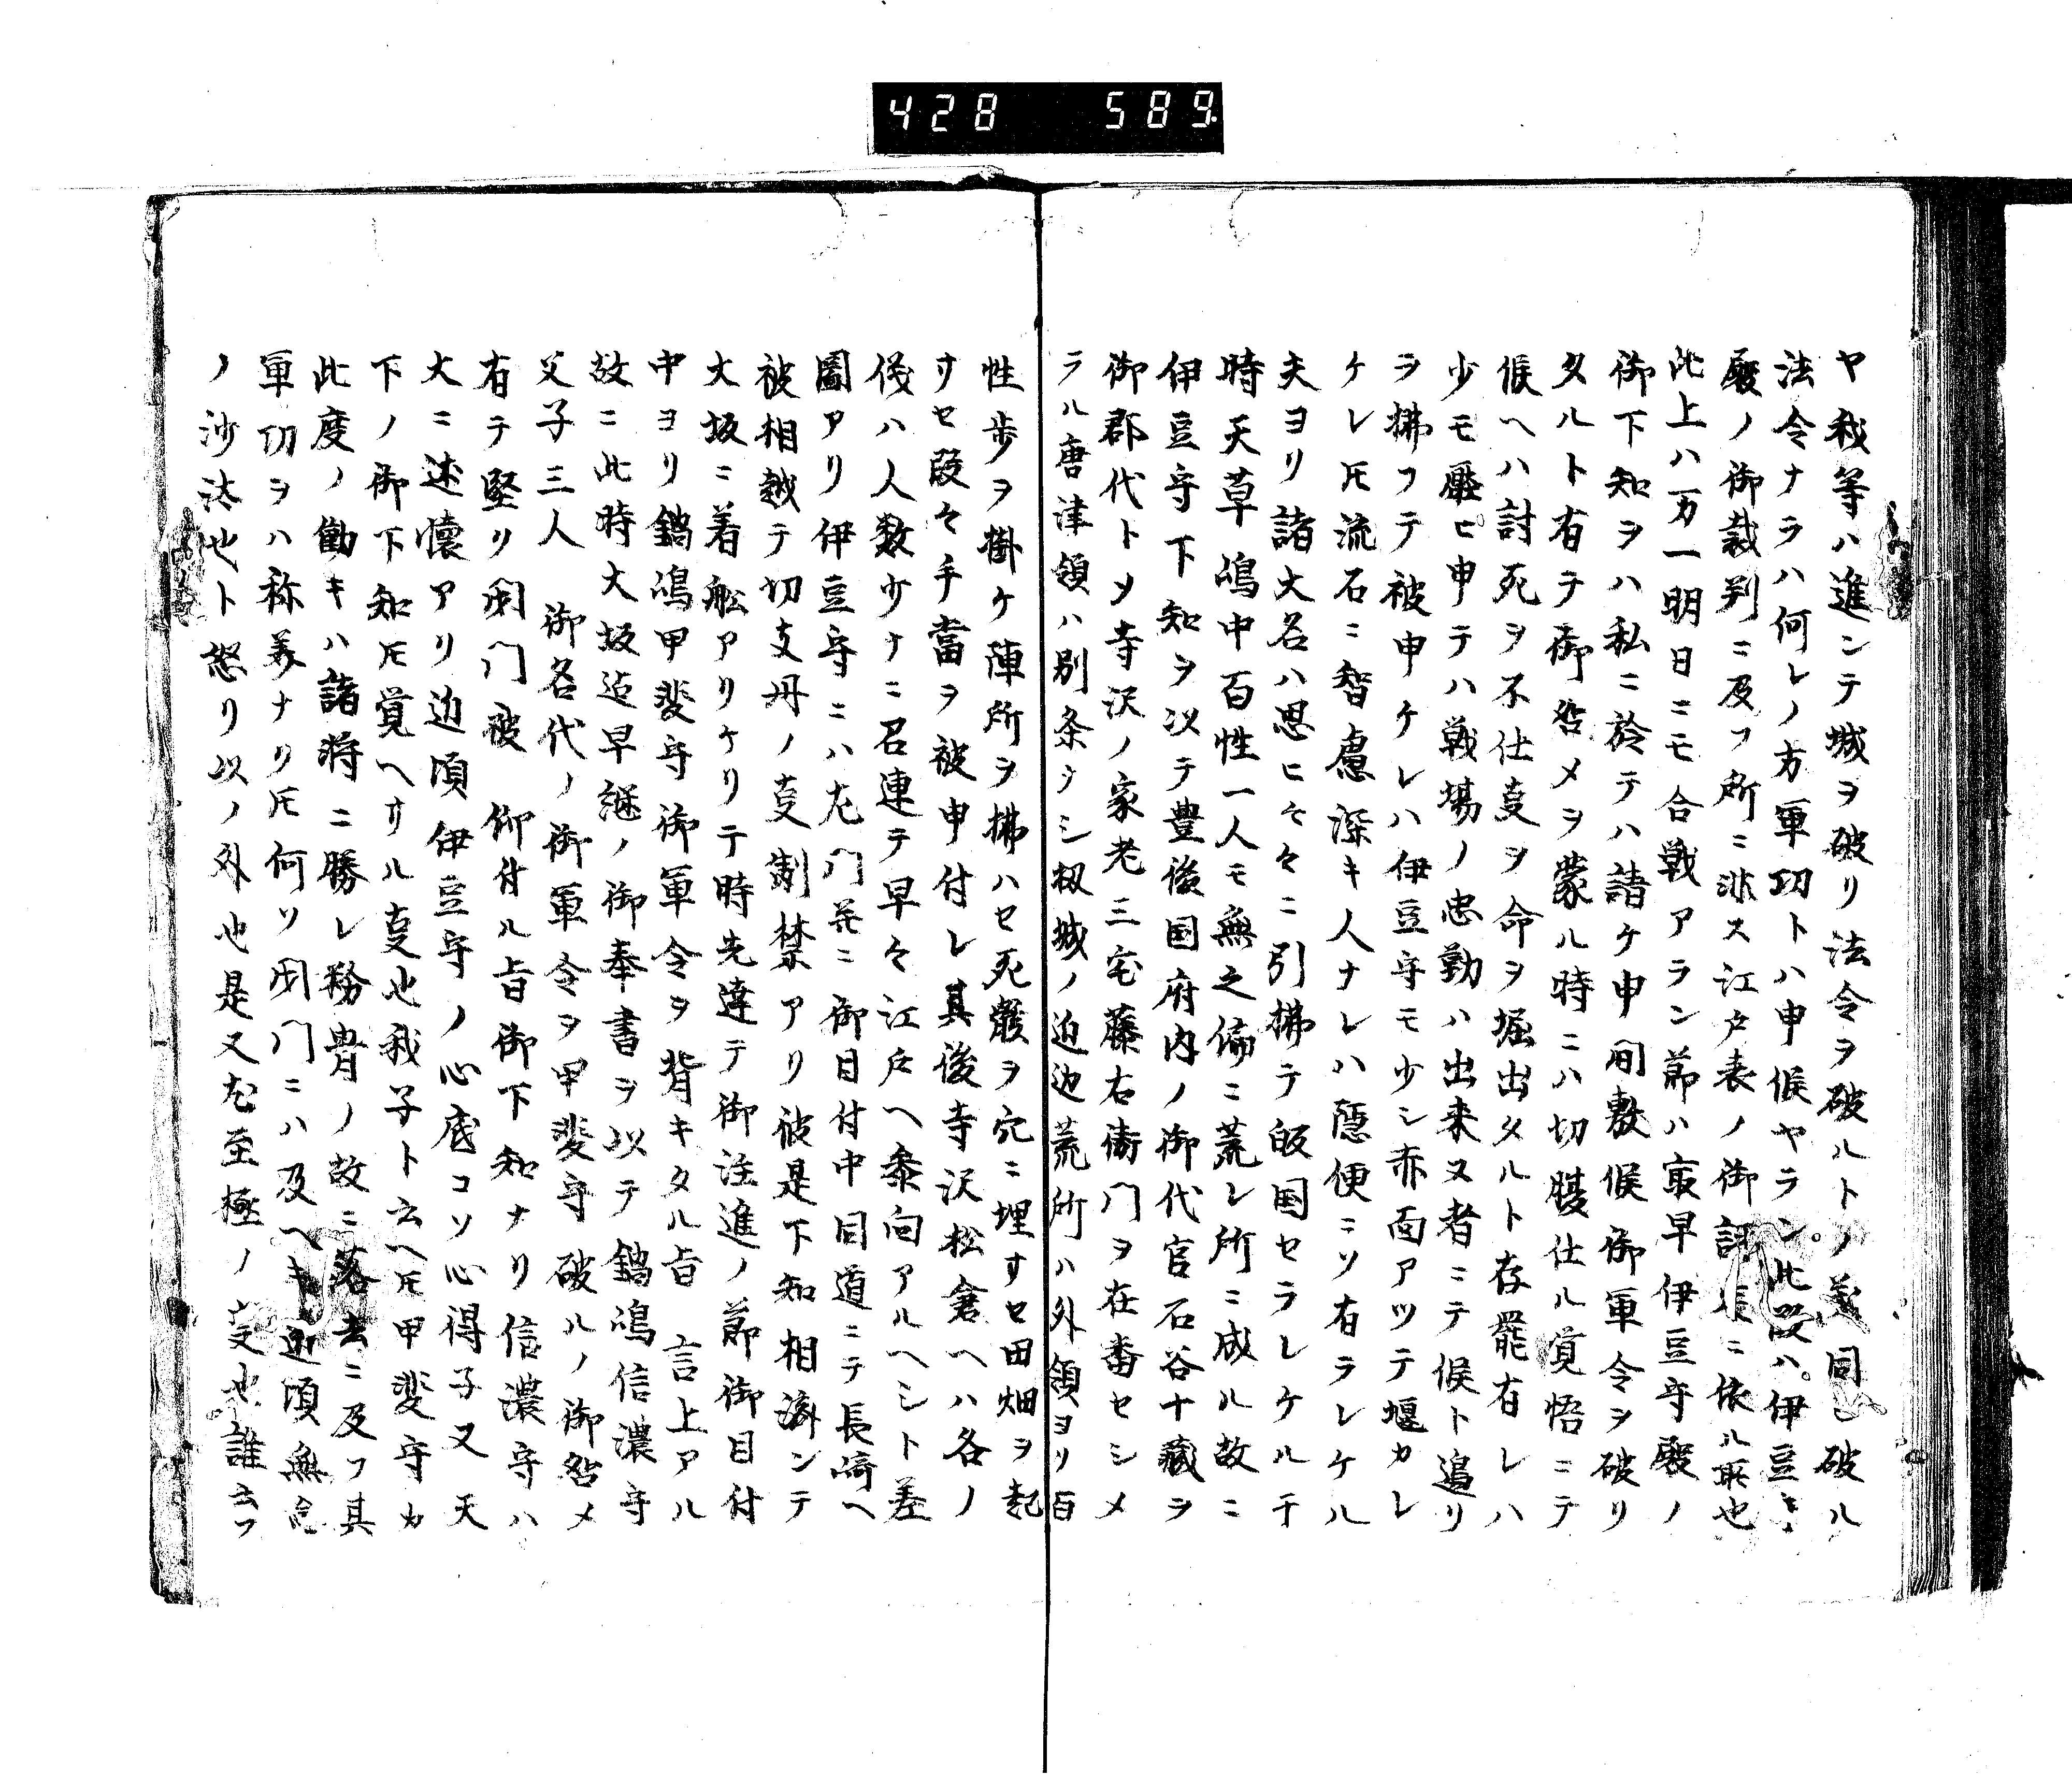 428 589
ヤ我等ハ進ンテ城ヲ破リ法令ヲ破ルトノ義同シ破ル
法令ナラハ何レノ方軍切トハ申候ヤラン此段ハ伊豆守
殿ノ御裁判ニ及フ所ニ非ス江戸表ノ御ニ依ル所也
此上ハ万一明日ニモ合戦アラン節ハ最早伊豆守殿ノ
御下知ヲハ私ニ於テハ請ケ申間敷候御軍令ヲ破リ
タルト有テ御咎メヲ蒙ル時ニハ切腹仕ル覚悟ニテ
候ヘハ討死ヲ不仕叓ヲ命ヲ堀出タルト存罷有レハ
少モ厭ヒ申テハ戦場ノ忠勤ハ出来ヌ者ニテ候ト邉リ
ヲ拂フテ被申ケレハ伊豆守モ少シ赤面アツテ堰カレ
ケレ𪜈流石ニ智慮深キ人ナレハ隠便ニソ有ラレケル
夫ヨリ諸大名ハ思ヒ々々ニ引拂テ皈国セラレケル于
時天草嶋中百性一人モ無之偏ニ荒レ所ニ成ル故ニ
伊豆守下知ヲ以テ豊後国府内ノ御代官石谷十蔵ヲ
御郡代トヲ寺沢ノ家老三宅藤右衛門ヲ在番セシメ
ラル唐津領ハ別条ナシ扨城ノ近辺荒所ハ外領ヨリ百
性歩ヲ掛ケ陣所ヲ拂ハセ死骸ヲ穴ニ埋サセ田畑ヲ起
サセ段々手當ヲ被申付レ其後寺沢松倉ヘハ各ノ
儀ハ人数少ナニ召連テ早々江戸ヘ参向アルヘシト差
圖アリ伊豆守ニハ左門并ニ御目付中同道ニテ長崎ヘ
被相越テ切支丹ノ叓制禁アリ彼是下知相濟ンテ
大坂ニ着舩アリケリテ時先達テ御注進ノ節御目付
中ヨリ鍋嶋甲斐守御軍令ヲ背キタル旨言上アル
故ニ此時大坂迠早継ノ御奉書ヲ以テ鍋嶋信濃守
父子三人御名代ノ御軍令ヲ甲斐守破ルノ御咎メ
有テ堅リ閉門被仰付ル旨御下知ナリ信濃守ハ
大ニ述懐アリ近頃伊豆守ノ心底コソ心得子又天
下ノ御下知𪜈覚ヘサル叓也我子ト云ヘ𪜈甲斐守カ
此度ノ働キハ諸将ニ勝レ粉骨ノ故ニ落去ニ及フ其
軍切ヲハ称美ナリ𪜈何ソ閉門ニハ及ヘキ近頃無念
ノ沙汰也ト怒リ以ノ外也是又尤至極ノ叓也誰云フ